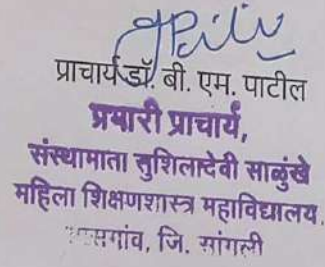 प्राचार्य डॉ. बी. एम. पाटील
प्रभारी प्राचार्य,
संस्थामाता सुशिलादेवी साळुंखे
महिला शिक्षणशास्त्र महाविद्यालय,
जि. सांगली